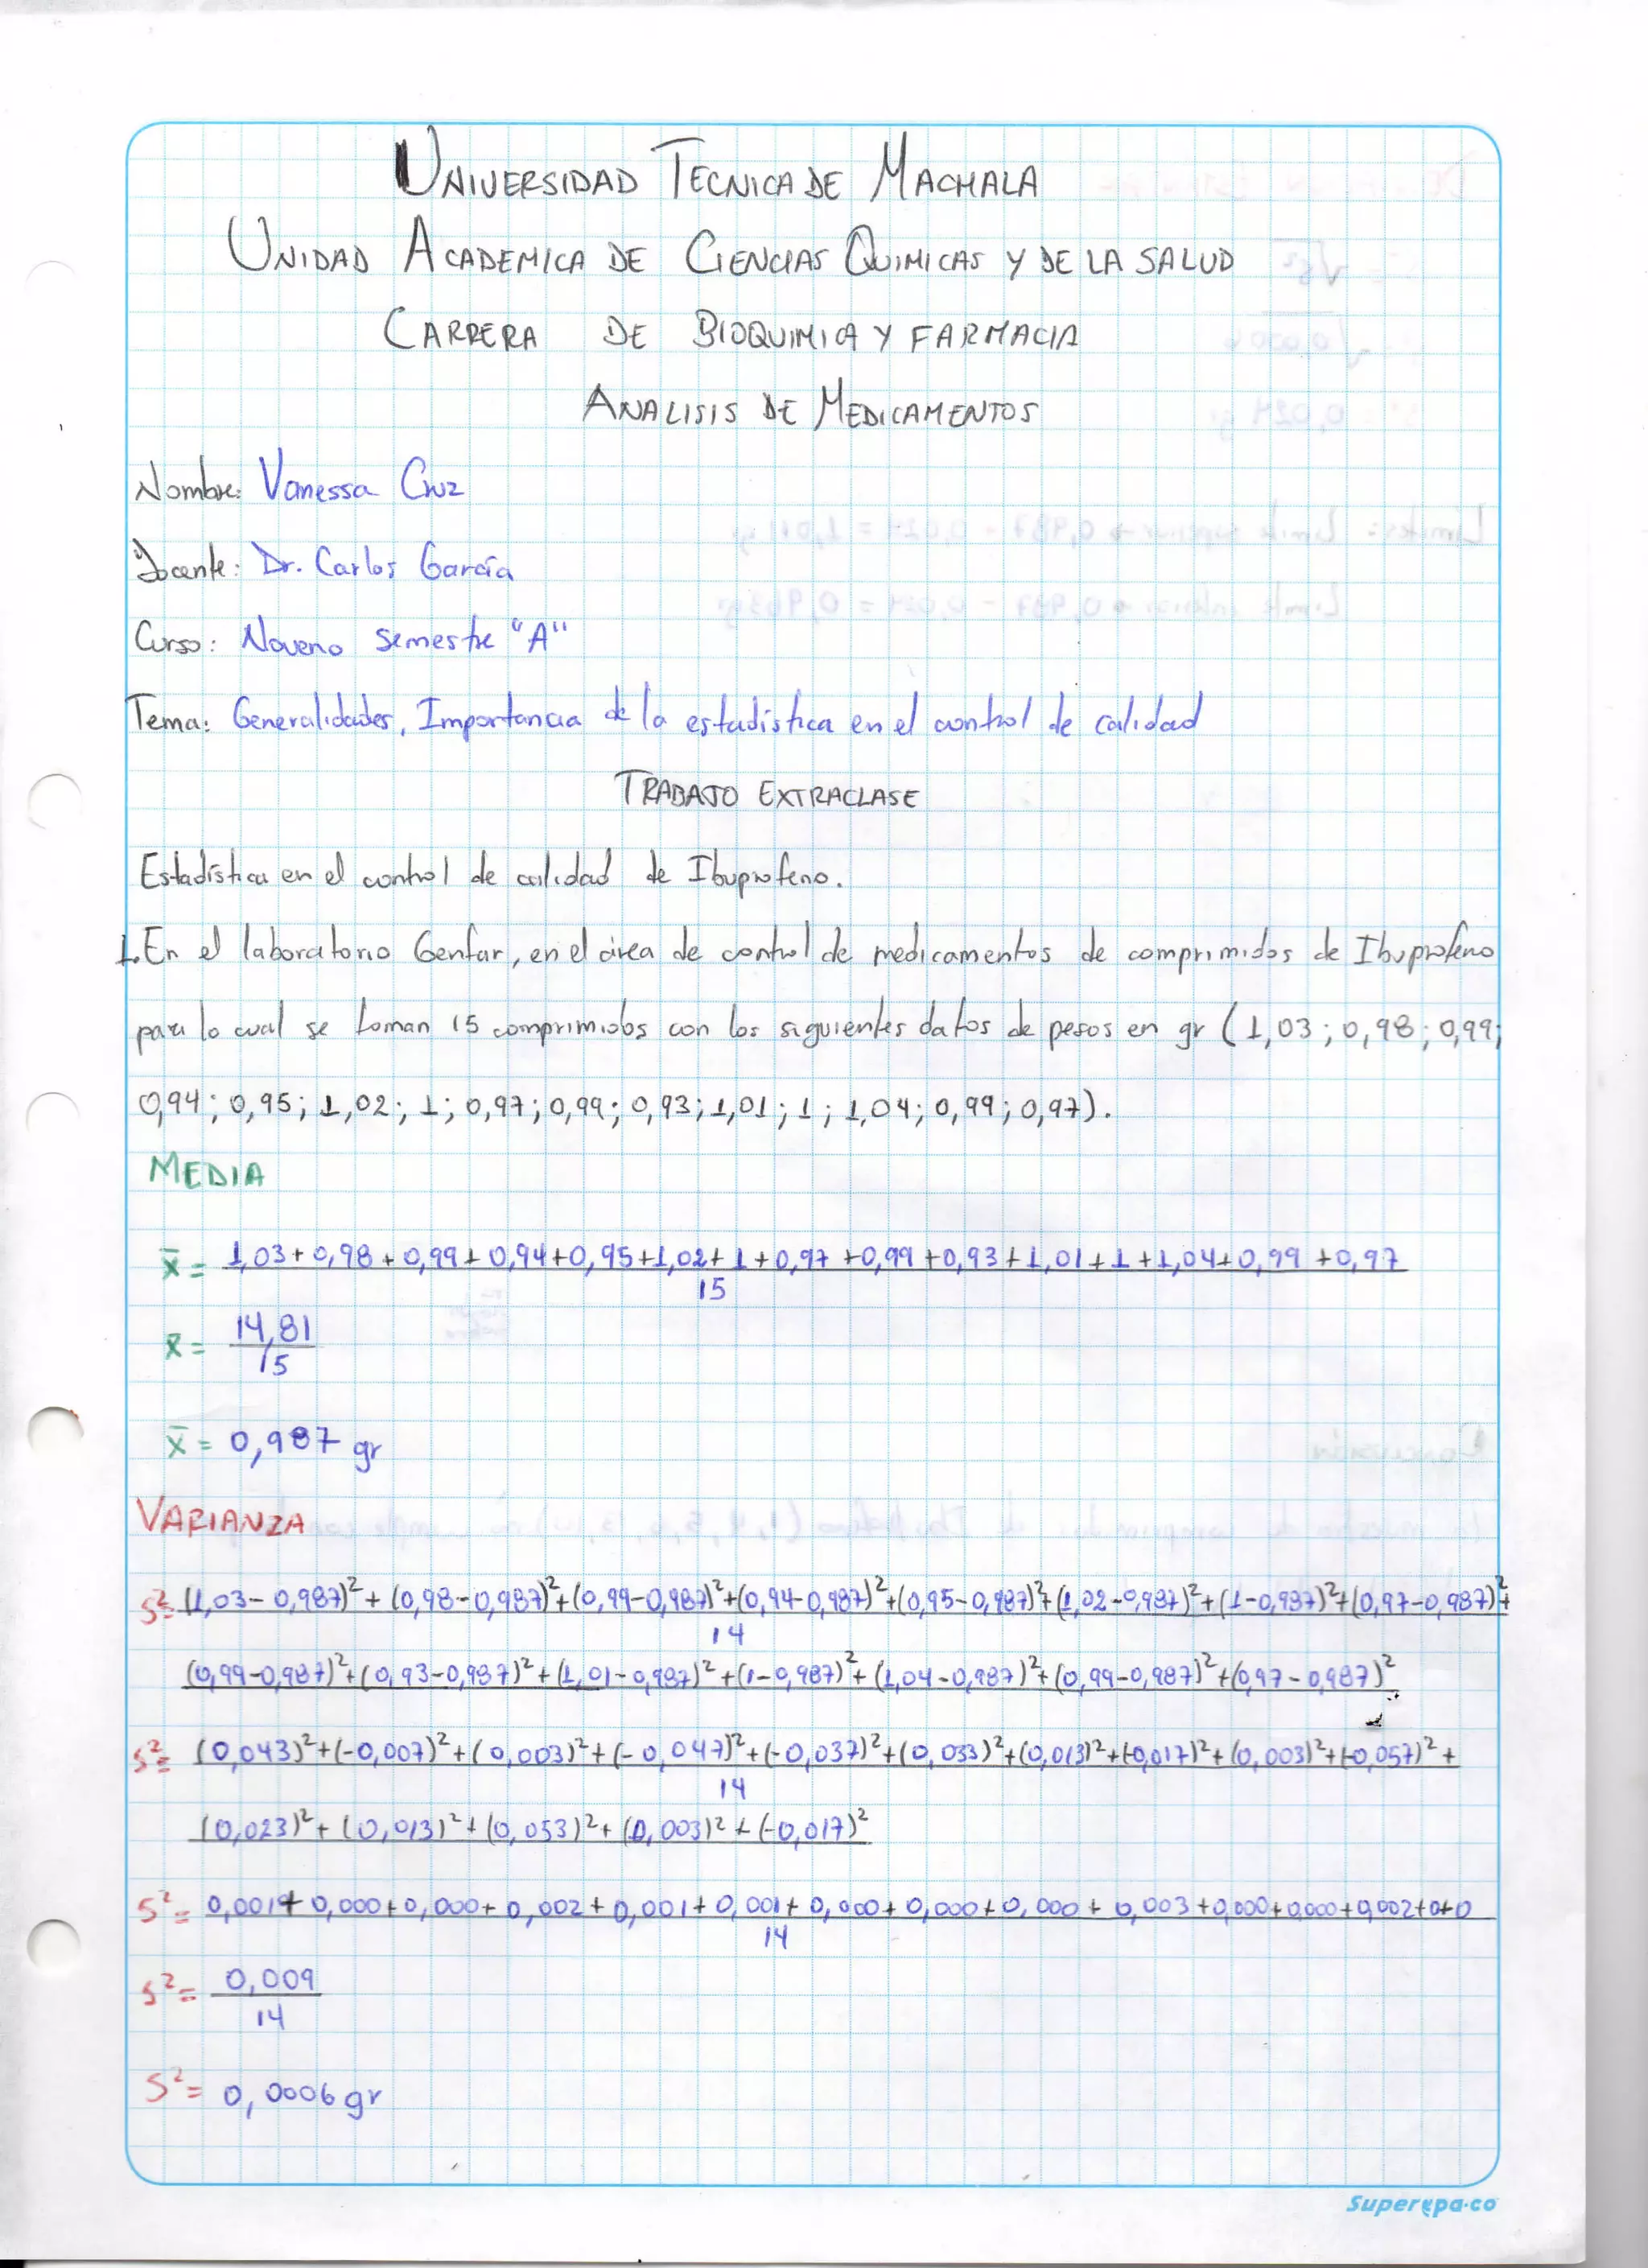 UNIVERSIDAD TECNICA DE MACHALA
UNIDAD ACADEMICA DE CIENCIAS QUIMICAS Y DE LA SALUD
CARRERA DE BIOQUIMICA Y FARMACIA
ANALISIS DE MEDICAMENTOS
Nombre: Vanessa Cruz
Docente: Dr. Carlos García
Curso: Noveno semestre "A"
Tema: Generalidades, Importancia de la estadística en el control de calidad
TRABAJO EXTRACLASE
Estadística en el control de calidad de Ibuprofeno.
1. En el laboratorio Genfar, en el área de control de medicamentos de comprimidos de Ibuprofeno
para lo cual se toman 15 comprimidos con los siguientes datos de pesos en gr (1,03; 0,98; 0,99;
0,94; 0,95; 1,02; 1; 0,97; 0,99; 0,93; 1,01; 1; 1,04; 0,99; 0,97).
MEDIA
x̄ = 1,03+0,98+0,99+0,94+0,95+1,02+1+0,97+0,99+0,93+1,01+1+1,04+0,99+0,97
15
x̄ = 14,81
15
x̄ = 0,987 gr
VARIANZA
S²= (1,03-0,987)²+(0,98-0,987)²+(0,99-0,987)²+(0,94-0,987)²+(0,95-0,987)²+(1,02-0,987)²+(1-0,987)²+(0,97-0,987)²+
14
(0,99-0,987)²+(0,93-0,987)²+(1,01-0,987)²+(1-0,987)²+(1,04-0,987)²+(0,99-0,987)²+(0,97-0,987)²
S²= (0,043)²+(-0,007)²+(0,003)²+(-0,047)²+(-0,037)²+(0,033)²+(0,013)²+(-0,017)²+(0,003)²+(-0,057)²+
14
(0,023)²+(0,013)²+(0,053)²+(0,003)²+(-0,017)²
S²= 0,001+0,000+0,000+0,002+0,001+0,001+0,000+0,000+0,000+0,003+0,000+0,000+0,002+0+0
14
S²= 0,009
14
S²= 0,0006 gr